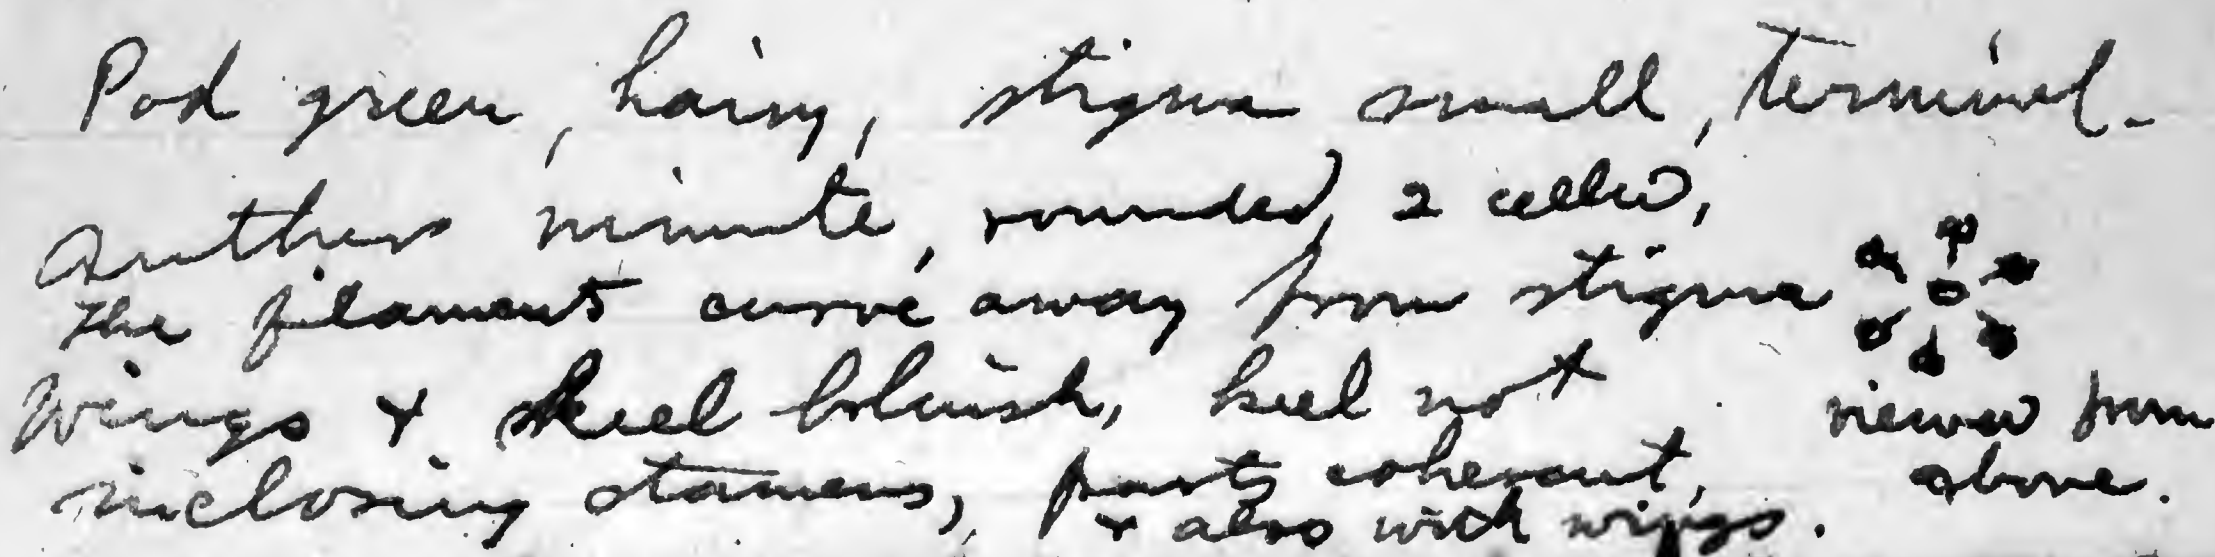 Pod green, hairy, stigma small, terminal.
Anthers minute, rounded, 2 celled,
The filaments curve away from stigma
Wings & keel bluish, keel not
inclosing stamens, parts coherent,
& also with wings.
viewed from
above.